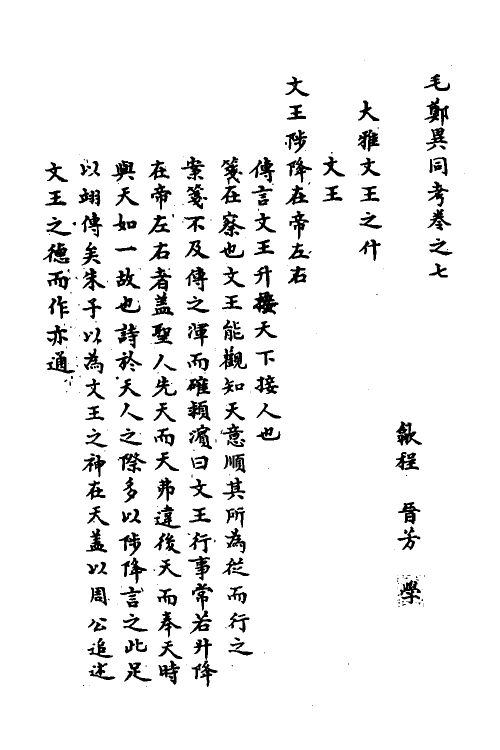 毛鄭異同考卷之七
歙程 晉芳 學
大雅文王之什
文王
文王陟降在帝左右
傳言文王升接天下接人也
箋在察也文王能觀知天意順其所為從而行之
案箋不及傳之渾而確潁濱曰文王行事常若升降
在帝左右者蓋聖人先天而天弗違後天而奉天時
與天如一故也詩於天人之際多以陟降言之此足
以翊傳矣朱子以為文王之神在天蓋以周公追述
文王之德而作亦通